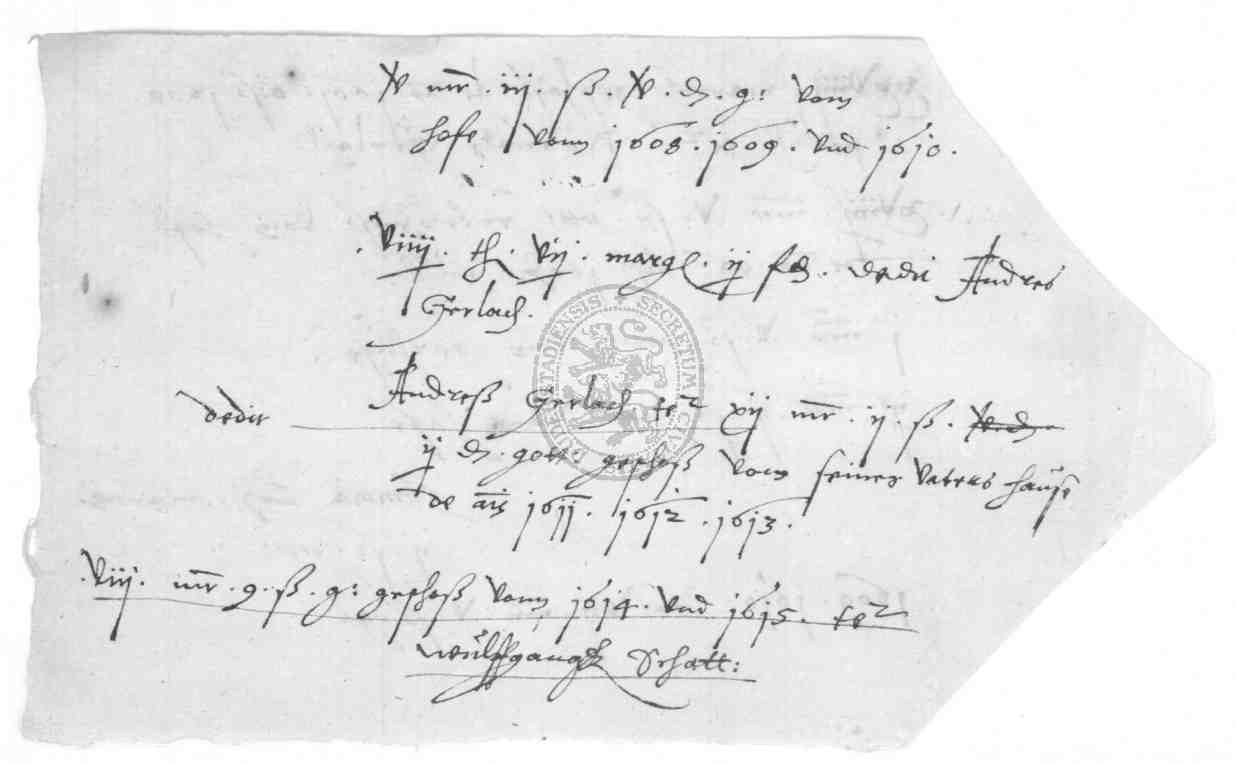 xv mr. iij. ß. xv. d. g: vom
hofe vonn 1608. 1609. vnd 1610.
. viiij. th. vij. margl. ij fd. dedit Andres
Gerlach.
dedit Andreß Gerlach te² xij mr. ij. ß. xv. d.
ij d. gott. geschoß vom seines vaters hauße
de ais 1611. 1612. 1613.
. viij. mr. 9. ß. g: geschoß vonn 1614. vnd 1615. te²
Wulffgangk Schatt:
SECRETUM CIVI
STADIENSIS